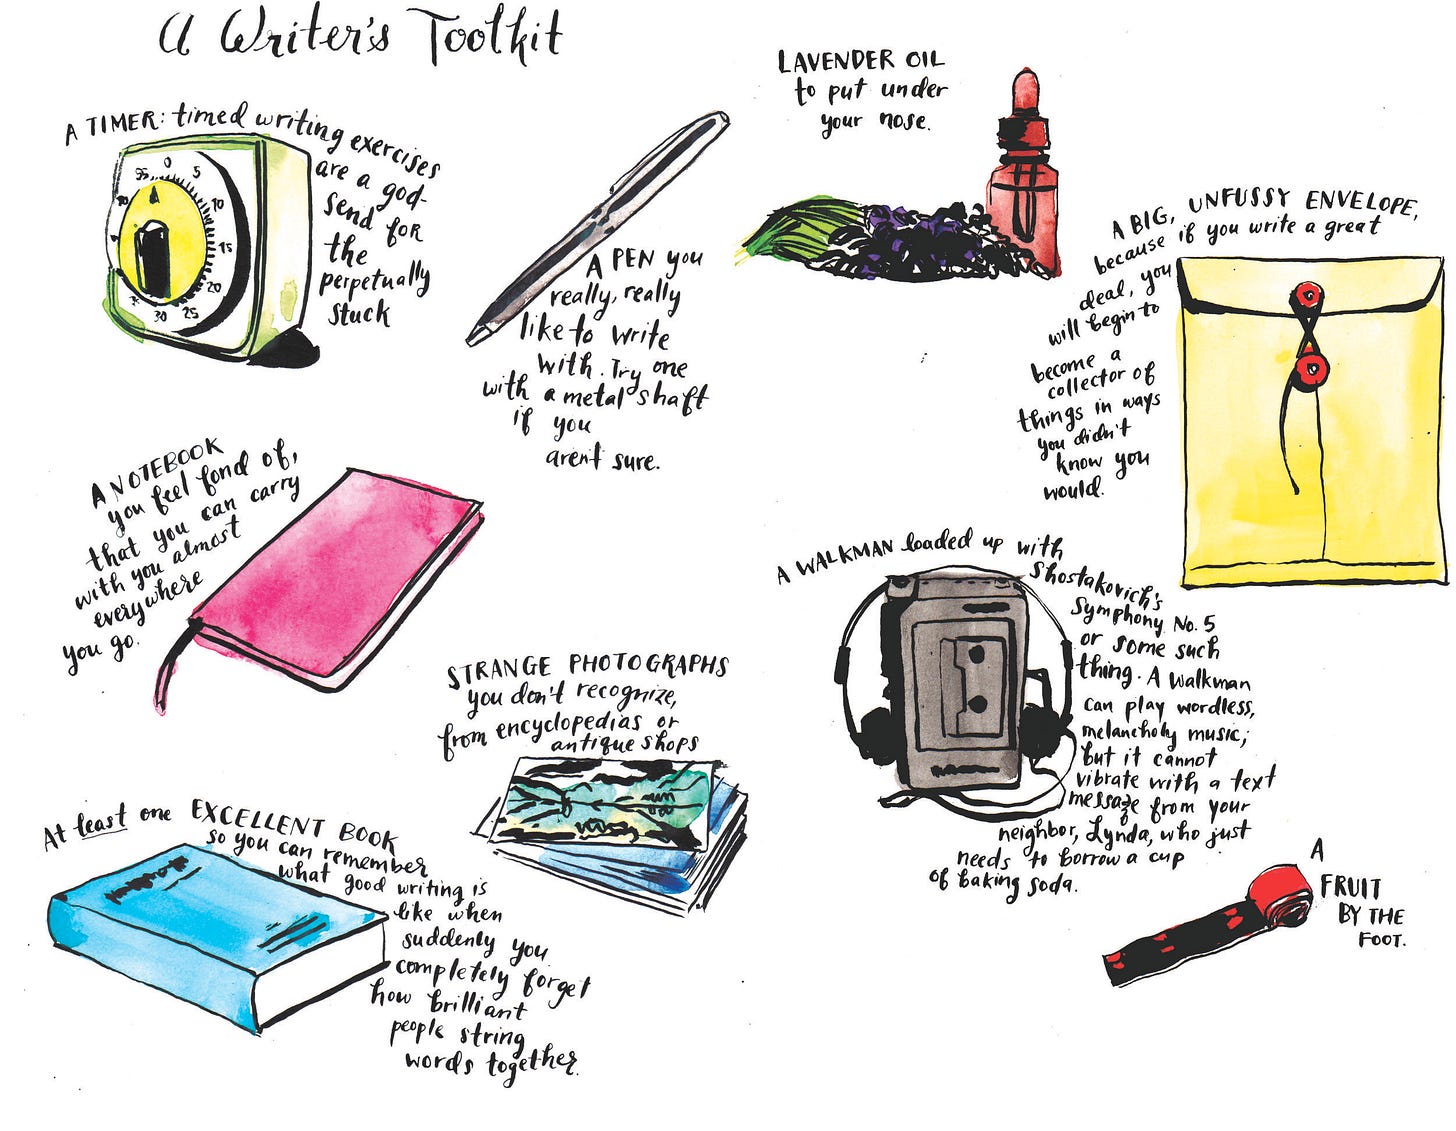 A Writer's Toolkit
A TIMER: timed writing exercises
are a god-
send for
the
perpetually
stuck
0
5
10
15
20
25
30
55
A PEN you
really, really
like to write
with. Try one
with a metal shaft
if you
aren't sure.
LAVENDER OIL
to put under
your nose.
A BIG, UNFUSSY ENVELOPE,
because if you write a great
deal, you
will begin to
become a
collector of
things in ways
you didn't
know you
would.
A NOTEBOOK
you feel fond of,
that you can carry
with you almost
everywhere
you go.
STRANGE PHOTOGRAPHS
you don't recognize,
from encyclopedias or
antique shops
A WALKMAN loaded up with
Shostakovich's
Symphony No. 5
or some such
thing. A Walkman
can play wordless,
melancholy music;
but it cannot
vibrate with a text
message from your
neighbor, Lynda, who just
needs to borrow a cup
of baking soda.
At least one EXCELLENT BOOK
so you can remember
what good writing is
like when
suddenly you
completely forget
how brilliant
people string
words together.
A
FRUIT
BY THE
FOOT.